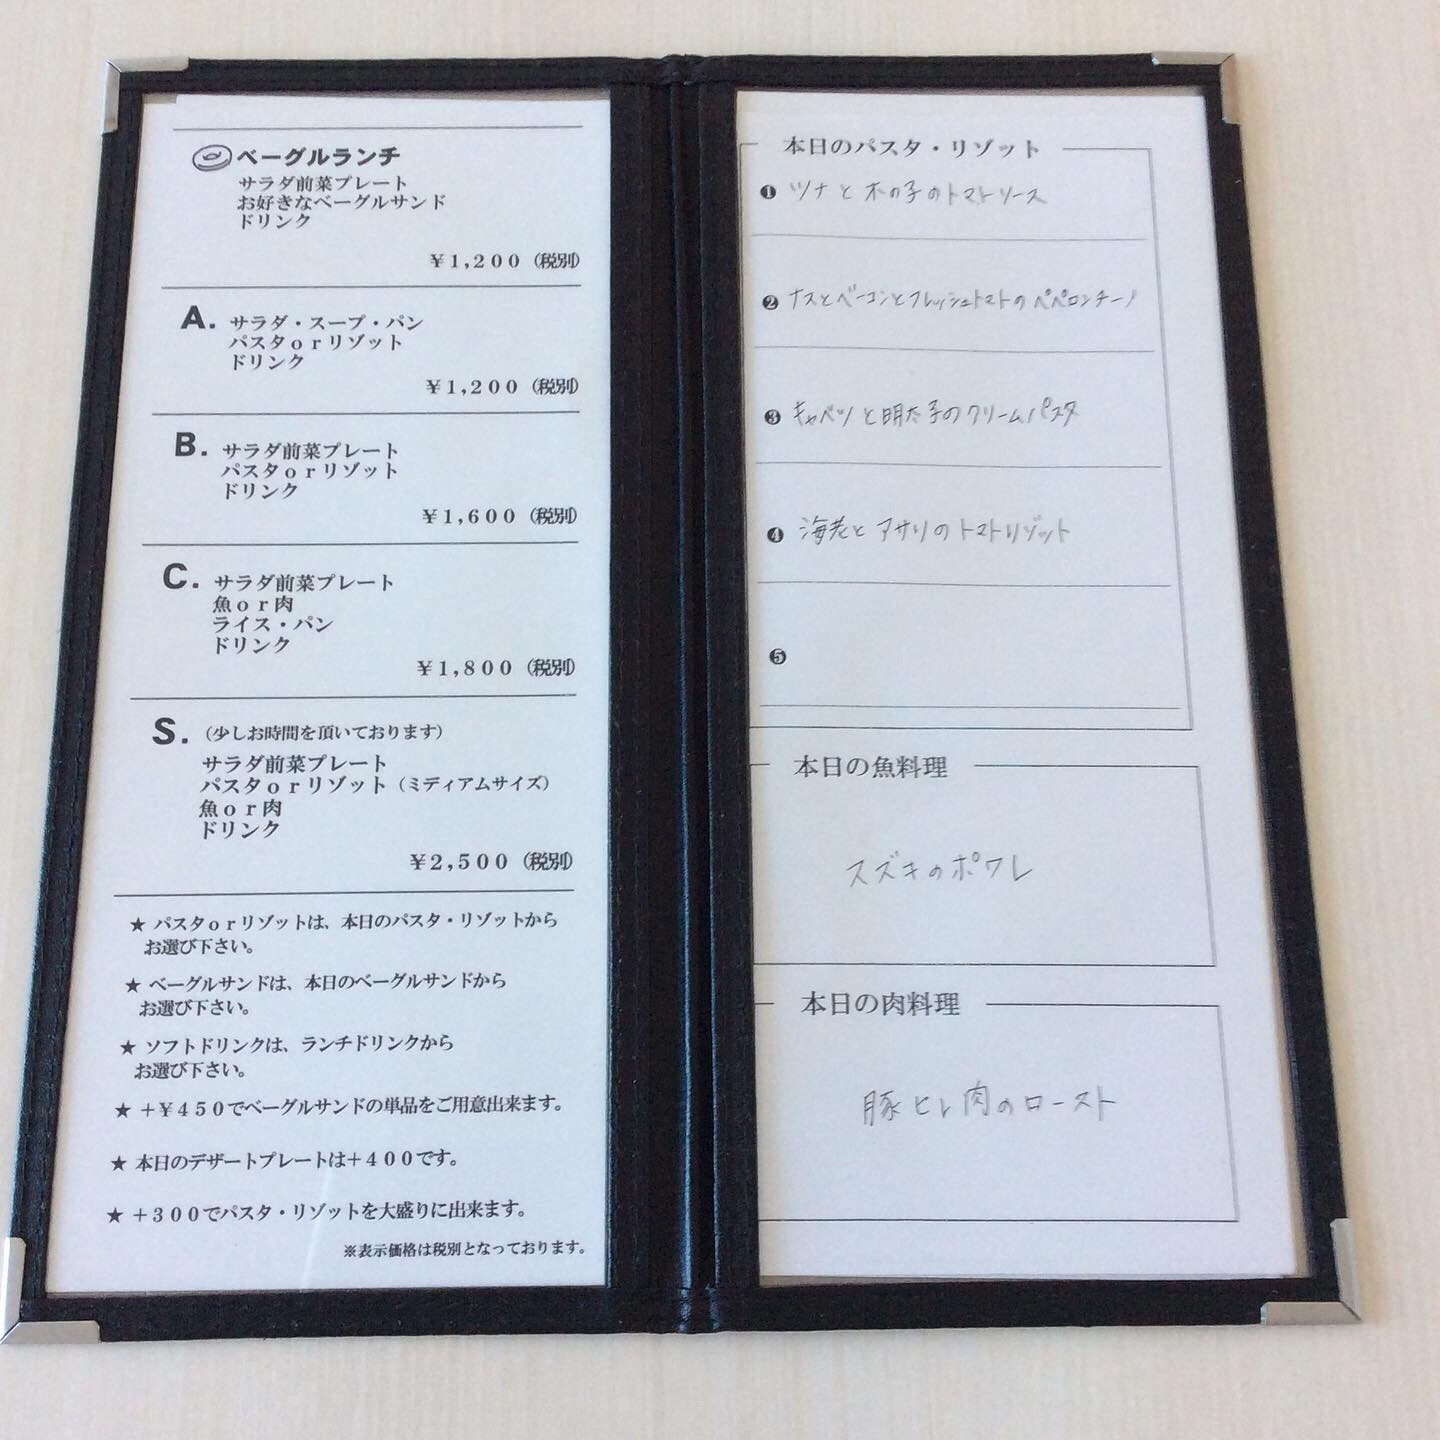 ベーグルランチ
サラダ前菜プレート
お好きなベーグルサンド
ドリンク
￥1,200（税別）
A. サラダ・スープ・パン
パスタorリゾット
ドリンク
￥1,200（税別）
B. サラダ前菜プレート
パスタorリゾット
ドリンク
￥1,600（税別）
C. サラダ前菜プレート
魚or肉
ライス・パン
ドリンク
￥1,800（税別）
S.（少しお時間を頂いております）
サラダ前菜プレート
パスタorリゾット（ミディアムサイズ）
魚or肉
ドリンク
￥2,500（税別）
★ パスタorリゾットは、本日のパスタ・リゾットから
お選び下さい。
★ ベーグルサンドは、本日のベーグルサンドから
お選び下さい。
★ ソフトドリンクは、ランチドリンクから
お選び下さい。
★ ＋￥450でベーグルサンドの単品をご用意出来ます。
★ 本日のデザートプレートは＋400です。
★ ＋300でパスタ・リゾットを大盛りに出来ます。
※表示価格は税別となっております。
本日のパスタ・リゾット
❶ ツナと木の子のトマトソース
❷ ナスとベーコンとフレッシュトマトのペペロンチーノ
❸ キャベツと明太子のクリームパスタ
❹ 海老とアサリのトマトリゾット
❺
本日の魚料理
スズキのポワレ
本日の肉料理
豚ヒレ肉のロースト